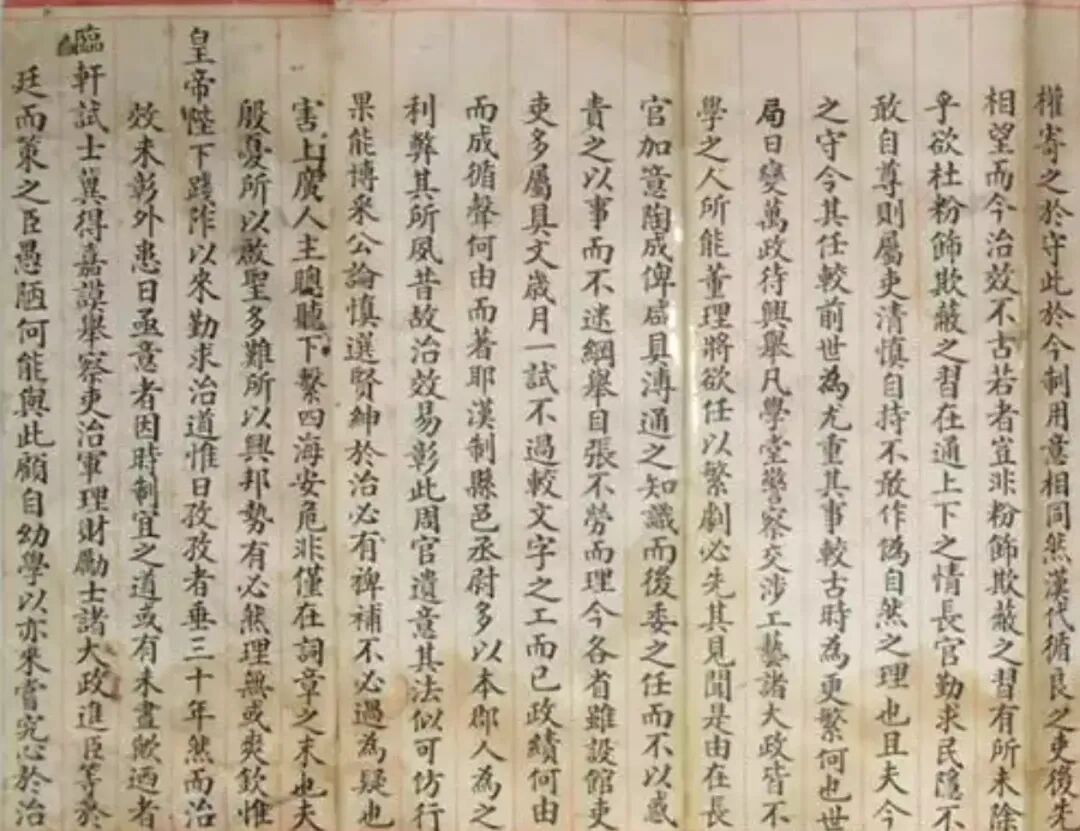 權寄之於守此於今制用意相同然漢代循良之吏後先
相望而今治效不古若者豈非粉飾欺蔽之習有所未除
乎欲杜粉飾欺蔽之習在通上下之情長官勤求民隱不
敢自尊則屬吏清慎自持不敢作偽自然之理也且夫今
之守令其任較前世為尤重其事較古時為更繁何也世
局日變萬政待興舉凡學堂警察交涉工藝諸大政皆不
學之人所能董理將欲任以繁劇必先其見聞是由在長
官加意陶成俾咸具溥通之知識而後委之任而不以惑
貴之以事而不迷綱舉目張不勞而理今各省雖設館吏
吏多屬具文歲月一試不過較文字之工而已政績何由
而成循聲何由而著耶漢制縣邑丞尉多以本郡人為之
利弊其所夙昔故治效易彰此周官遺意其法似可仿行
果能博采公論慎選賢紳於治必有裨補不必過為疑也
害上廣人主聰聽下繫四海安危非僅在詞章之末也夫
殷憂所以啟聖多難所以興邦勢有必然理無或爽欽惟
皇帝陛下踐阼以來勤求治道惟日孜孜者垂三十年然而治
效未彰外患日亟意者因時制宜之道或有未盡歟迺者
臨軒試士冀得嘉謨舉察吏治軍理財勵士諸大政進臣等於
廷而策之臣愚陋何能與此顧自幼學以亦來嘗究心於治